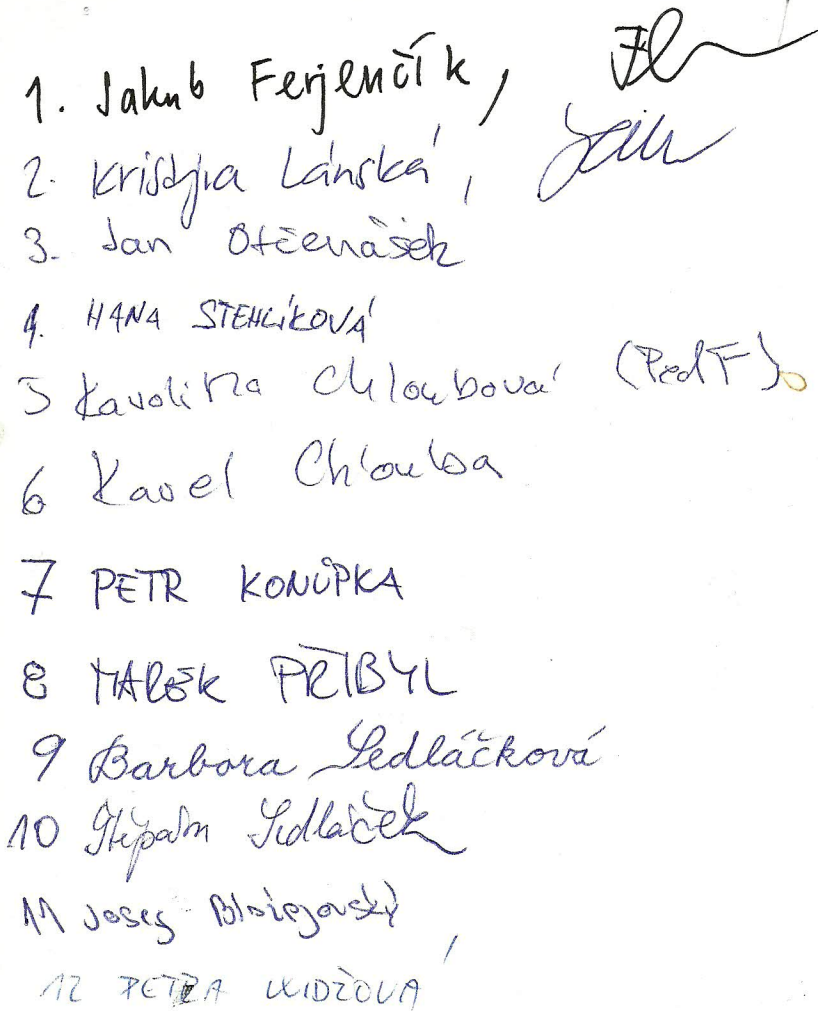 1. Jakub Ferjenčík,
2. Kristýna Lánská,
3. Jan Otčenášek
4. HANA STEHLÍKOVÁ
5 Karolina Chloubová (PedF)
6 Karel Chlouba
7 PETR KONŮPKA
8 MAREK PŘIBYL
9 Barbora Sedláčková
10 Štěpán Sedláček
11 Josef
12 PETRA